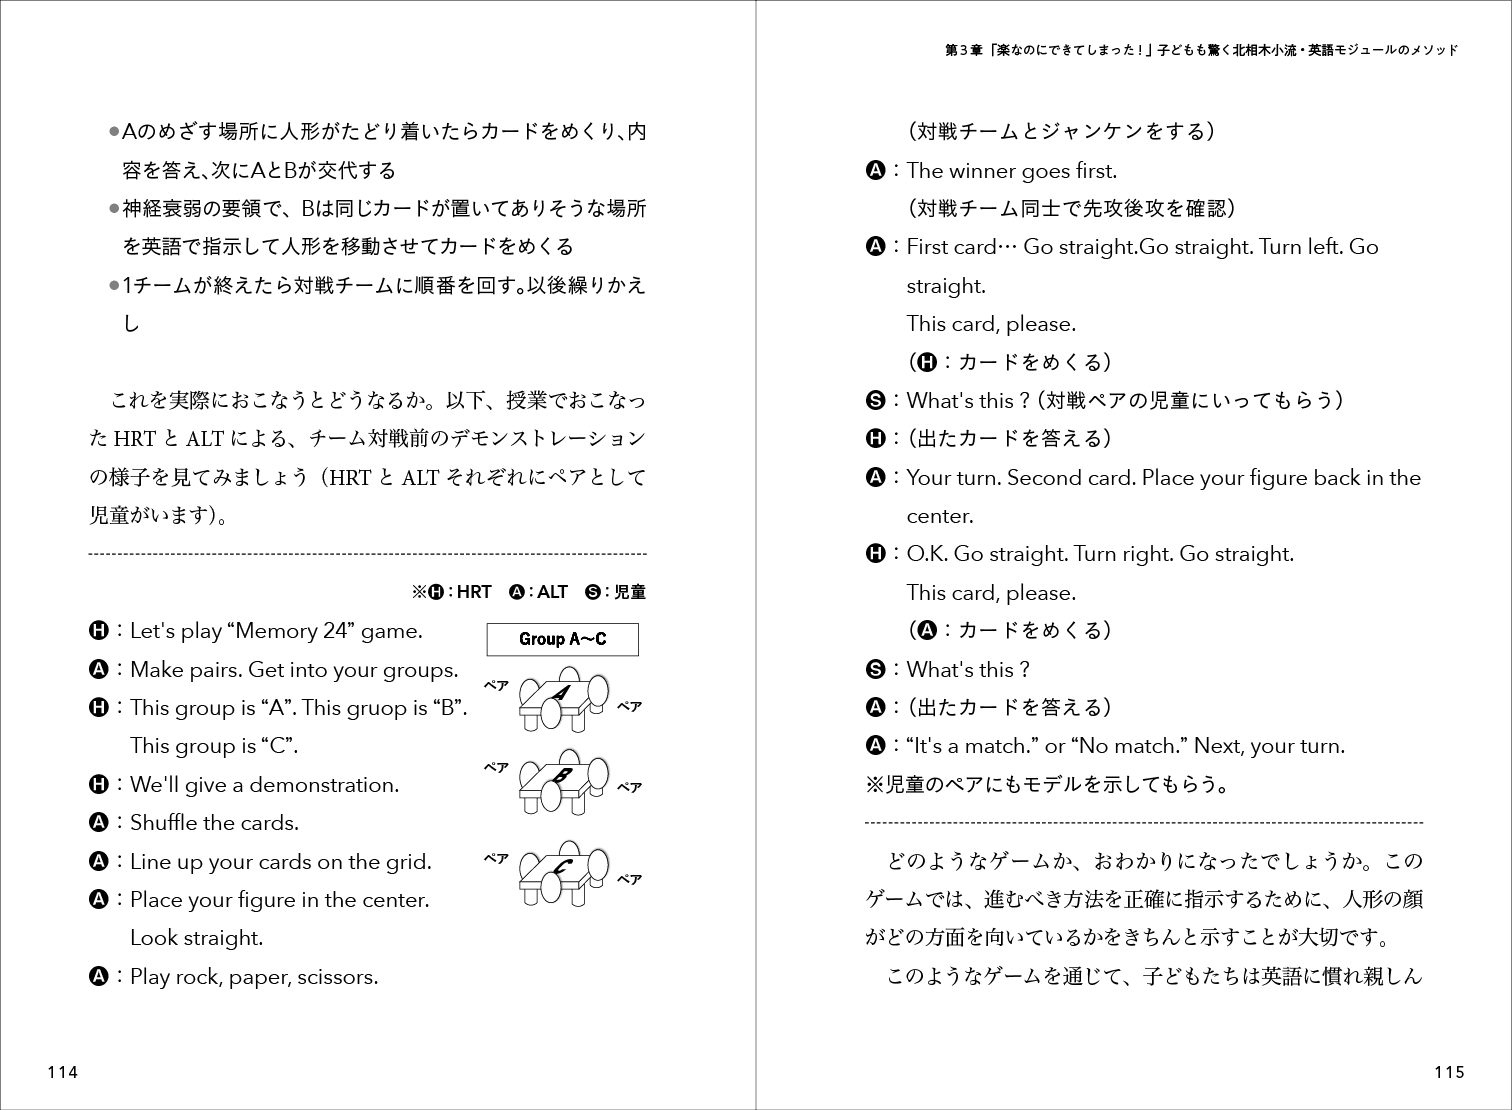 ●Aのめざす場所に人形がたどり着いたらカードをめくり、内
容を答え、次にAとBが交代する
●神経衰弱の要領で、Bは同じカードが置いてありそうな場所
を英語で指示して人形を移動させてカードをめくる
●1チームが終えたら対戦チームに順番を回す。以後繰りかえ
し
これを実際におこなうとどうなるか。以下、授業でおこなっ
た HRT と ALT による、チーム対戦前のデモンストレーション
の様子を見てみましょう（HRT と ALT それぞれにペアとして
児童がいます）。
※H：HRT A：ALT S：児童
H：Let's play “Memory 24” game.
A：Make pairs. Get into your groups.
H：This group is “A”. This gruop is “B”.
This group is “C”.
H：We'll give a demonstration.
A：Shuffle the cards.
A：Line up your cards on the grid.
A：Place your figure in the center.
Look straight.
A：Play rock, paper, scissors.
Group A〜C
ペア
A
ペア
ペア
B
ペア
ペア
C
ペア
114
第3章「楽なのにできてしまった！」子どもも驚く北相木小流・英語モジュールのメソッド
（対戦チームとジャンケンをする）
A：The winner goes first.
（対戦チーム同士で先攻後攻を確認）
A：First card… Go straight.Go straight. Turn left. Go
straight.
This card, please.
（H：カードをめくる）
S：What's this？（対戦ペアの児童にいってもらう）
H：（出たカードを答える）
A：Your turn. Second card. Place your figure back in the
center.
H：O.K. Go straight. Turn right. Go straight.
This card, please.
（A：カードをめくる）
S：What's this？
A：（出たカードを答える）
A：“It's a match.” or “No match.” Next, your turn.
※児童のペアにもモデルを示してもらう。
どのようなゲームか、おわかりになったでしょうか。この
ゲームでは、進むべき方法を正確に指示するために、人形の顔
がどの方面を向いているかをきちんと示すことが大切です。
このようなゲームを通じて、子どもたちは英語に慣れ親しん
115